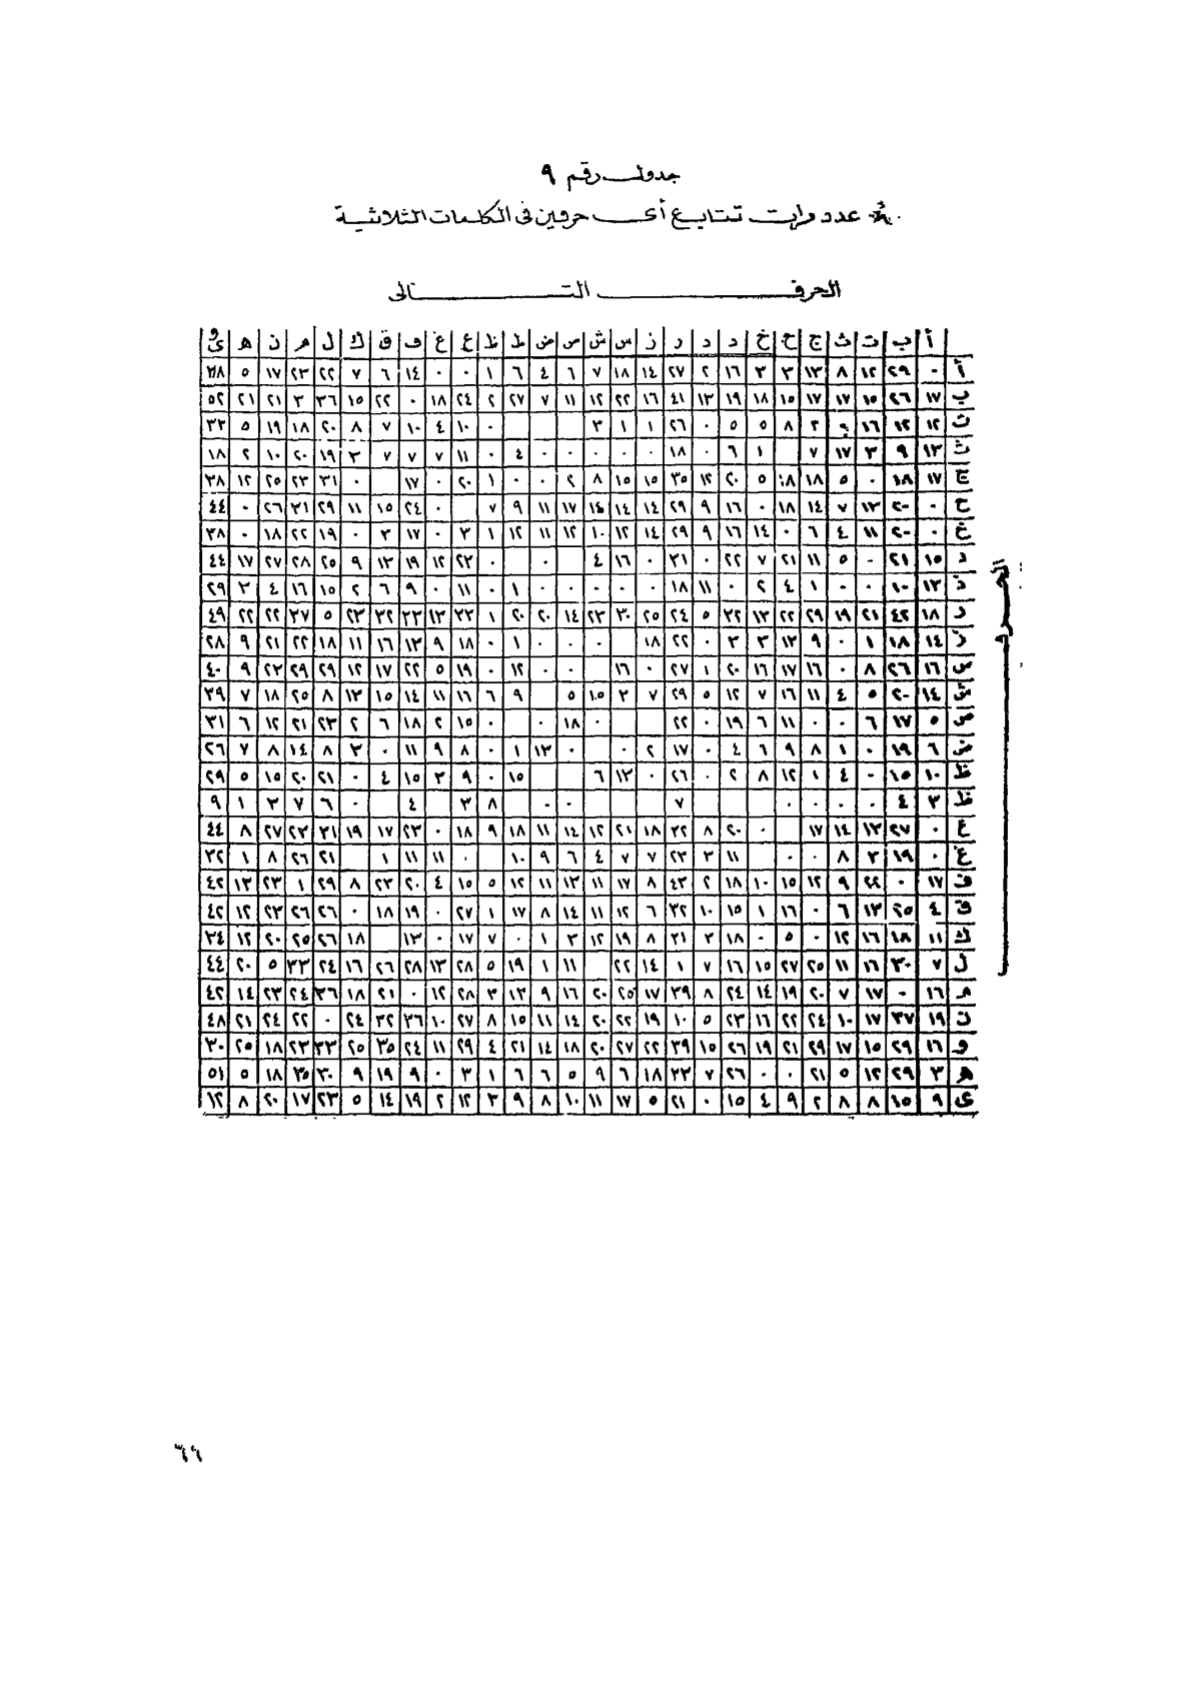 جدول رقم ٩
عدد مرات تتابع أى حرفين فى الكلمات الثلاثية
الحرف التالى
أ ب ت ث ج ح خ د د ر ز س ش ص ض ط ظ ع غ ف ق ك ل م ن ه و ى
أ ٠ ٢٩ ١٢ ٨ ١٣ ٣ ٣ ١٦ ٢ ٢٧ ١٤ ١٨ ٧ ٦ ٤ ٦ ١ ٠ ٠ ١٤ ٦ ٧ ٢٢ ٢٣ ١٧ ٥ ٣٨
ب ١٧ ٢٦ ١٥ ١٧ ١٧ ١٥ ١٨ ١٩ ١٣ ٤١ ١٦ ٢٢ ١٢ ١١ ٧ ٢٧ ٢ ٢٤ ١٨ ٠ ٢٢ ١٥ ٣٦ ٣ ٢١ ٢١ ٥٢
ت ١٢ ١٢ ١٦ ٩ ٢ ٨ ٥ ٥ ٠ ٢٦ ١ ١ ٣ ٠ ١٠ ٤ ١٠ ٧ ٨ ٢٠ ١٨ ١٩ ٥ ٣٣
ث ١٣ ٩ ٣ ١٧ ٧ ١ ٦ ٠ ١٨ ٠ ٠ ٠ ٠ ٠ ٤ ٠ ١١ ٧ ٧ ٧ ٣ ١٩ ٢٠ ١٠ ٢ ١٨
ج ١٧ ١٨ ٠ ٥ ١٨ ١٨ ٥ ٢٠ ١٢ ٣٥ ١٥ ١٥ ٨ ٢ ٠ ٠ ١ ٢٠ ٠ ١٧ ٠ ٣١ ٢٣ ٢٥ ١٢ ٣٨
ح ٠ ٢٠ ١٣ ٧ ١٤ ١٨ ٠ ١٦ ٩ ٢٩ ١٤ ١٤ ١٤ ١٧ ١١ ٩ ٧ ٠ ٢٤ ١٥ ١١ ٢٩ ٣١ ٢٦ ٠ ٤٤
خ ٠ ٢٠ ١١ ٤ ٦ ٠ ١٤ ١٦ ٩ ٢٩ ١٤ ١٢ ١٠ ١٢ ١١ ١٢ ١ ٣ ٠ ١٧ ٣ ٠ ١٩ ٢٢ ١٨ ٠ ٣٨
د ١٥ ٢١ ٠ ٥ ١١ ٢١ ٧ ٢٢ ٠ ٣١ ٠ ١٦ ٤ ٠ ٠ ٢٣ ١٢ ١٩ ١٣ ٩ ٢٥ ٢٨ ٢٧ ١٧ ٤٤
ذ ١٣ ١٠ ٠ ٠ ١ ٤ ٢ ٠ ١١ ١٨ ٠ ٠ ٠ ٠ ٠ ١ ٠ ١١ ٠ ٩ ٦ ٢ ١٥ ١٦ ٤ ٣ ٢٩
ر ١٨ ٤٢ ٢١ ١٩ ٢٩ ٢٢ ١٣ ٣٢ ٥ ٢٤ ٢٥ ٣٠ ٢٣ ١٤ ٢٠ ٢٠ ١ ٣٢ ١٣ ٣٣ ٣٢ ٢٣ ٥ ٣٧ ٢٢ ٢٢ ٤٩
ز ١٤ ١٨ ١ ٠ ٩ ١٣ ٣ ٣ ٠ ٢٢ ١٨ ٠ ٠ ٠ ١ ٠ ١٨ ٩ ١٣ ١٦ ١١ ١٨ ٢٢ ٢١ ٩ ٢٨
س ١٦ ٢٦ ٨ ٠ ١٦ ١٧ ١٦ ٢٠ ١ ٢٧ ٠ ١٦ ٠ ٠ ١٢ ٠ ١٩ ٥ ٢٢ ١٧ ١٢ ٢٩ ٢٩ ٢٣ ٩ ٤٠
ش ١٤ ٢٠ ٥ ٤ ١١ ١٦ ٧ ١٢ ٥ ٢٩ ٧ ٢ ١٥ ٥ ٩ ٦ ١٦ ١١ ١٤ ١٥ ١٣ ٨ ٢٥ ١٨ ٧ ٣٩
ص ٥ ١٧ ٦ ٠ ٠ ١١ ٦ ١٩ ٠ ٢٢ ٠ ١٨ ٠ ٠ ١٥ ٢ ١٨ ٦ ٢ ٢٣ ٢١ ١٢ ٦ ٣١
ض ٦ ١٩ ٠ ١ ٨ ٩ ٦ ٤ ٠ ١٧ ٢ ٠ ٠ ١٣ ١ ٠ ٨ ٩ ١١ ٠ ٣ ٨ ١٤ ٨ ٧ ٢٦
ط ١٠ ١٥ ٠ ٤ ١ ١٢ ٨ ٢ ٠ ٢٦ ٠ ١٣ ٦ ١٥ ٠ ٩ ٣ ١٥ ٤ ٠ ٢١ ٢٠ ١٥ ٥ ٢٩
ظ ٣ ٤ ٠ ٠ ٠ ٠ ٧ ٠ ٠ ٨ ٣ ٤ ٠ ٦ ٧ ٣ ١ ٩
ع ٠ ٢٧ ١٣ ١٤ ١٧ ٠ ٢٠ ٨ ٣٢ ١٨ ٢١ ١٢ ١٤ ١١ ١٨ ٩ ١٨ ٠ ٢٣ ١٧ ١٩ ٣١ ٢٣ ٢٧ ٨ ٤٤
غ ٠ ١٩ ٣ ٨ ٠ ٠ ١١ ٣ ٢٣ ٧ ٧ ٤ ٦ ٩ ١٠ ٠ ١١ ١١ ١ ٢١ ٢٦ ٨ ١ ٣٢
ف ١٧ ٠ ٢٤ ٩ ١٢ ١٥ ١٠ ١٨ ٢ ٤٣ ٨ ١٧ ١١ ١٣ ١١ ١٢ ٥ ١٥ ٤ ٢٠ ٢٣ ٨ ٢٩ ١ ٢٣ ١٣ ٤٢
ق ٤ ٢٥ ١٣ ٦ ٠ ١٦ ١ ١٥ ١٠ ٣٢ ٦ ١٢ ١١ ١٤ ٨ ١٧ ١ ٢٧ ٠ ١٩ ١٨ ٠ ٢٦ ٢٦ ٢٣ ١٢ ٤٢
ك ١١ ١٨ ١٦ ١٢ ٠ ٥ ٠ ١٨ ٣ ٣١ ٨ ١٩ ١٢ ٣ ١ ٠ ٧ ١٧ ٠ ١٣ ١٨ ٢٦ ٢٥ ٢٠ ١٢ ٣٤
ل ٧ ٣٠ ١٦ ١١ ٢٥ ٢٧ ١٥ ١٦ ٧ ١ ١٤ ٢٢ ١١ ١ ١٩ ٥ ٢٨ ١٣ ٢٨ ٢٦ ١٦ ٢٤ ٣٣ ٥ ٢٠ ٤٤
م ١٦ ٠ ١٧ ٧ ٢٠ ١٩ ١٤ ٢٤ ٨ ٣٩ ١٧ ٢٥ ٢٠ ١٦ ٩ ١٣ ٣ ٢٨ ١٢ ٠ ٢١ ١٨ ٣٦ ٢٤ ٢٣ ١٤ ٤٢
ن ١٩ ٣٧ ١٧ ١٠ ٢٤ ٢٢ ١٦ ٢٣ ٥ ١٠ ١٩ ٢٢ ٢٠ ١٤ ١١ ١٥ ٨ ٢٧ ١٠ ٣٦ ٣٢ ٢٤ ٠ ٢٢ ٢٤ ٢١ ٤٨
و ١٦ ٢٩ ١٥ ١٧ ٢٩ ٢١ ١٩ ٢٦ ١٥ ٣٩ ٢٢ ٢٧ ٢٠ ١٨ ١٤ ٢١ ٤ ٢٩ ١١ ٢٤ ٣٥ ٢٥ ٣٣ ٢٣ ١٨ ٢٥ ٣٠
ه ٣ ٢٩ ١٢ ٥ ٢١ ٠ ٠ ٢٦ ٧ ٣٣ ١٨ ٦ ٩ ٥ ٦ ٦ ١ ٣ ٠ ٩ ١٩ ٩ ٣٠ ٣٥ ١٨ ٥ ٥١
ى ٩ ١٥ ٨ ٨ ٢ ٩ ٤ ١٥ ٠ ٢١ ٥ ١٧ ١١ ١٠ ٨ ٩ ٣ ١٢ ٢ ١٩ ١٤ ٥ ٢٣ ١٧ ٢٠ ٨ ١٢
٦٦